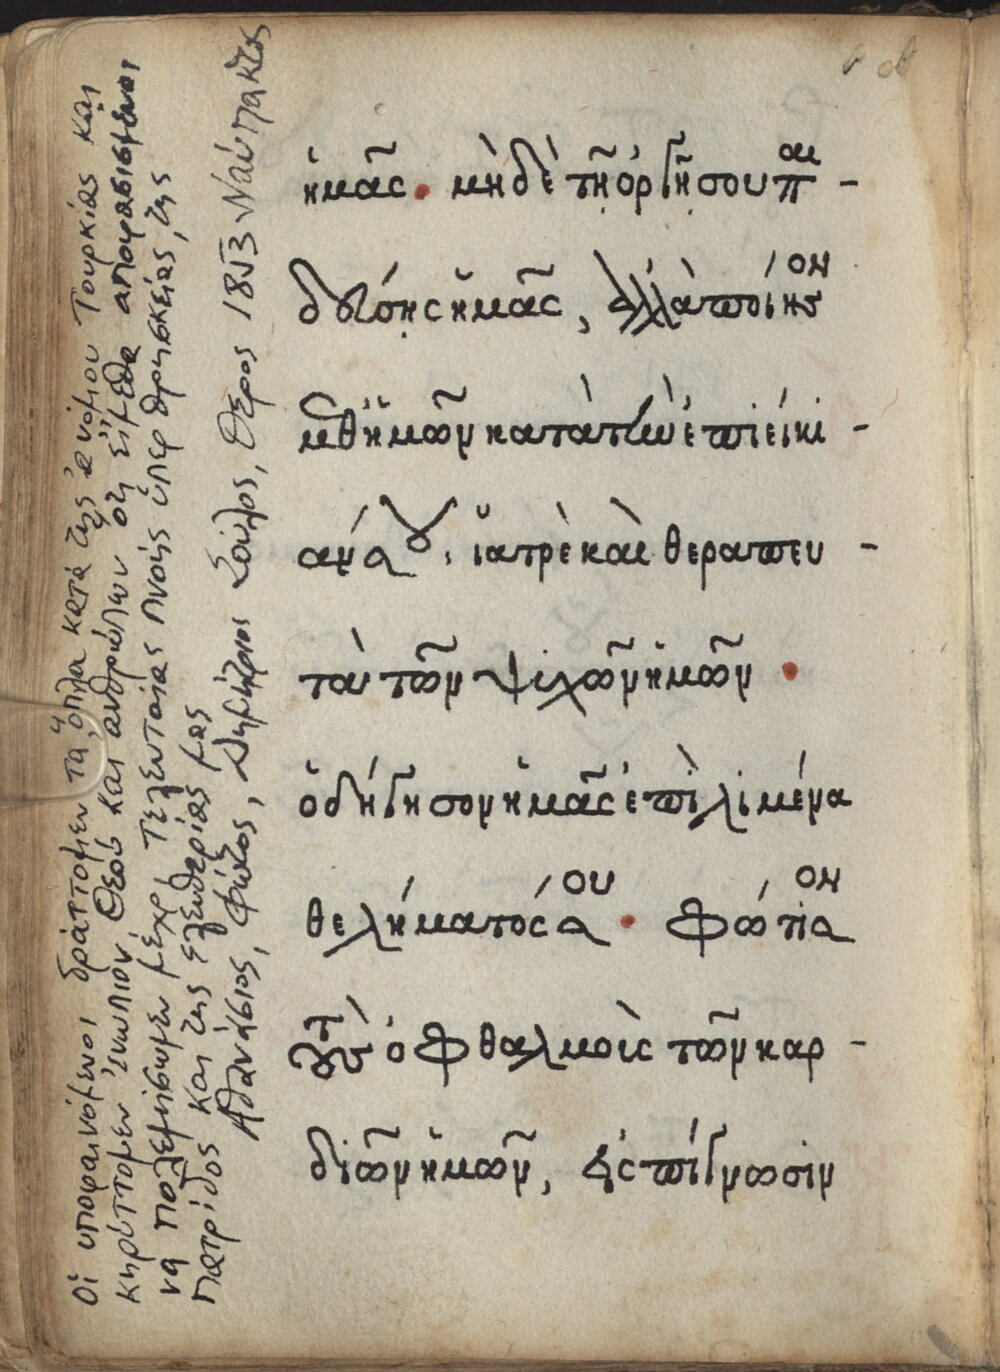 ἡμᾶς. μὴδὲ τῆ ὀργῆ σου παι -
δεύσης ἡμᾶς, ἀλλὰ ποίησον
μεθ ἡμῶν κατὰ τὴν ἐπιείκι -
αν σου, ἰατρὲ καὶ θεραπευ -
τὰ τῶν ψυχῶν ἡμῶν.
ὁδήγησον ἡμᾶς ἐπὶ λιμένα
θελήματός σου. φώτισον
τοὺς ὀφθαλμοὺς τῶν καρ -
διῶν ἡμῶν, εἰς ἐπίγνωσιν
Οἱ υποφαινόμενοι δράττομεν τὰ ὅπλα κατά της ἀνόμου Τουρκίας και
κηρύττομεν ἐνώπιον Θεού και ανθρώπων ότι εἴμεθα αποφασισμένοι
να πολεμήσωμεν μέχρι τελευταίας πνοής ὑπερ θρησκείας, της
πατρίδος και της ελευθερίας μας
Αθανάσιος, Φώτος, Δημήτριος Σούλος, Θέρος 1853 Ναύπακτος